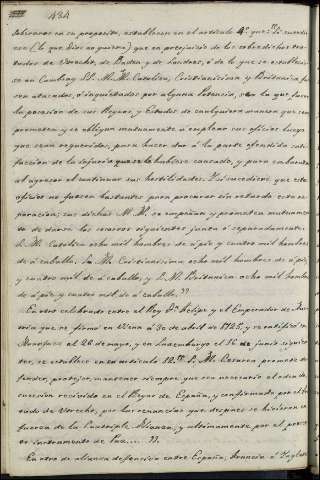 434
Sobrarse en su proposito, establecen en el articulo 4º que: "Si sucedie
se (lo que Dios no quiera) que en perjuicio de los sobredichos tra
tados de Utrecht, de Baden y de Londres, ó de lo que se establecie
se en Cambray SS. M. M. Catolica, Cristianisima y Britanica fue
sen atacados, ó inquietados por alguna potencia, sea la que fuere
la posesion de sus Reynos y Estados de cualquiera manera que sea
prometen y se obligan mutuamente á emplear sus oficios luego
que sean requeridos, para hacer dar á la parte ofendida satis
faccion de la injuria que se le hubiese causado, y para embarazar
al agresor el continuar sus hostilidades. Y si sucediere que estos
oficios no fuesen bastantes para procurar sin retardo esta re
paracion; sus dichas M. M. se empeñan y prometen mutuamen
te de darse los socorros siguientes junta ó separadamente.
S. M. Catolica ocho mil hombres de á pie y cuatro mil hombres
de á caballo. Su M. Cristianisima ocho mil hombres de á pie,
y cuatro mil de á caballo; y S. M. Britanica ocho mil hombres
de á pie, y cuatro mil de á caballo."
En otro celebrado entre el Rey Dn Felipe y el Emperador de Aus
tria que se firmó en Viena á 30 de abril de 1725, y se ratificó en
Aranjuez el 26 de mayo, y en Luxemburgo el 16 de junio siguien
tes, se establece en su articulo 12.. S. M. Cesarea promete de
fender, proteger, mantener siempre que sea necesario el orden de
sucesion recivido en el Reyno de España, y confirmado por el tra
tado de Utrecht, por las renuncias que despues se hicieron en
fuerza de la Cuadruple Alianza, y ultimamente por el presen
te instrumento de Paz.... ".
En otro de alianza defensiva entre España, Francia é Inglate